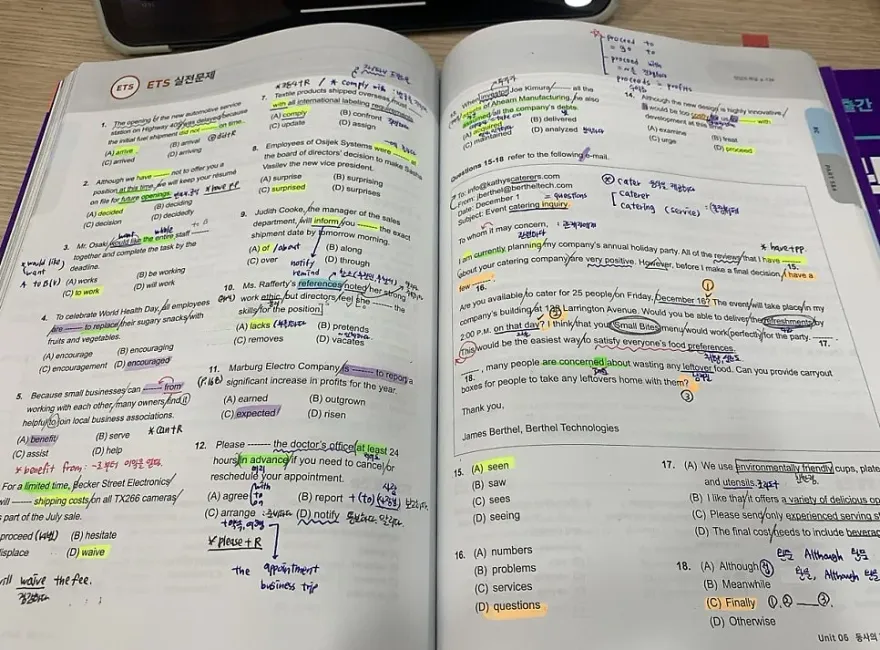 ETS ETS 실전문제
1. The opening of the new automotive service
station on Highway was delayed because
the initial fuel shipment did not ------- on time.
(A) arrive (B) arrival
(C) arrived (D) arriving
2. Although we have ------- not to offer you a
position at this time, we will keep your résumé
on file for future openings. * have pp
(A) decided (B) deciding
(C) decision (D) decidedly
3. Mr. Osaki would like the entire staff -------
together and complete the task by the
deadline.
* would like
want
A to B(v)
(A) works (B) be working
(C) to work (D) will work
4. To celebrate World Health Day, employees
are ------- to replace their sugary snacks with
fruits and vegetables.
(A) encourage (B) encouraging
(C) encouragement (D) encouraged
5. Because small businesses can ------- from
working with each other, many owners find it
helpful to join local business associations.
(A) benefit (B) serve * can+R
(C) assist (D) help
* benefit from : ~로부터 이익을 얻다.
For a limited time, Becker Street Electronics
will ------- shipping costs on all TX266 cameras
as part of the July sale.
proceed (B) hesitate
displace (D) waive
will waive the fee.
7. Textile products shipped overseas must -------
with all international labeling requirements.
(A) comply (B) confront
(C) update (D) assign
8. Employees of Osijek Systems were ------- at
the board of directors' decision to make Sasha
Vasilev the new vice president.
(A) surprise (B) surprising
(C) surprised (D) surprises
9. Judith Cooke, the manager of the sales
department, will inform you ------- the exact
shipment date by tomorrow morning.
(A) of / about (B) along
(C) over (D) through
notify
remind
10. Ms. Rafferty's references noted her strong
work ethic, but directors feel she ------- the
skills for the position.
(A) lacks (B) pretends
(C) removes (D) vacates
11. Marburg Electro Company is ------- to report a
significant increase in profits for the year.
(A) earned (B) outgrown
(C) expected (D) risen
12. Please ------- the doctor's office at least 24
hours in advance if you need to cancel or
reschedule your appointment.
(A) agree (B) report
(C) arrange (D) notify
with
to
on
* please+R
the appointment
business trip
proceed to
= go to
proceed with
proceeds = profits
When investor Joe Kimura ------- all the
assets of Ahearn Manufacturing, he also
all the company's debts.
(A) acquired (B) delivered
(C) maintained (D) analyzed
14. Although the new design is highly innovative,
it would be too costly ------- with
development at this time.
(A) examine (B) treat
(C) urge (D) proceed
Questions 15-18 refer to the following e-mail.
To: info@kathyscaterers.com
From: jberthel@bertheltech.com
Date: December 1
Subject: Event catering inquiry
= questions
cater
caterer
catering (service)
To whom it may concern,
I am currently planning my company's annual holiday party. All of the reviews that I have -------
15.
about your catering company are very positive. However, before I make a final decision, I have a
few -------.
16.
* have+pp.
Are you available to cater for 25 people on Friday, December 16? The event will take place in my
company's building at Larrington Avenue. Would you be able to deliver the refreshments by
2:00 P.M. on that day? I think that your Small Bites menu would work perfectly for the party. -------
17.
This would be the easiest way to satisfy everyone's food preferences.
-------, many people are concerned about wasting any leftover food. Can you provide carryout
18.
boxes for people to take any leftovers home with them?
③
Thank you,
James Berthel, Berthel Technologies
15. (A) seen
(B) saw
(C) sees
(D) seeing
16. (A) numbers
(B) problems
(C) services
(D) questions
17. (A) We use environmentally friendly cups, plates
and utensils.
(B) I like that it offers a variety of delicious
(C) Please send only experienced serving
(D) The final cost needs to include
18. (A) Although
(B) Meanwhile
(C) Finally ①. ② ___ ③.
(D) Otherwise
완문 Although 완문
완문, Although 완문
PART 5&6
Unit 06